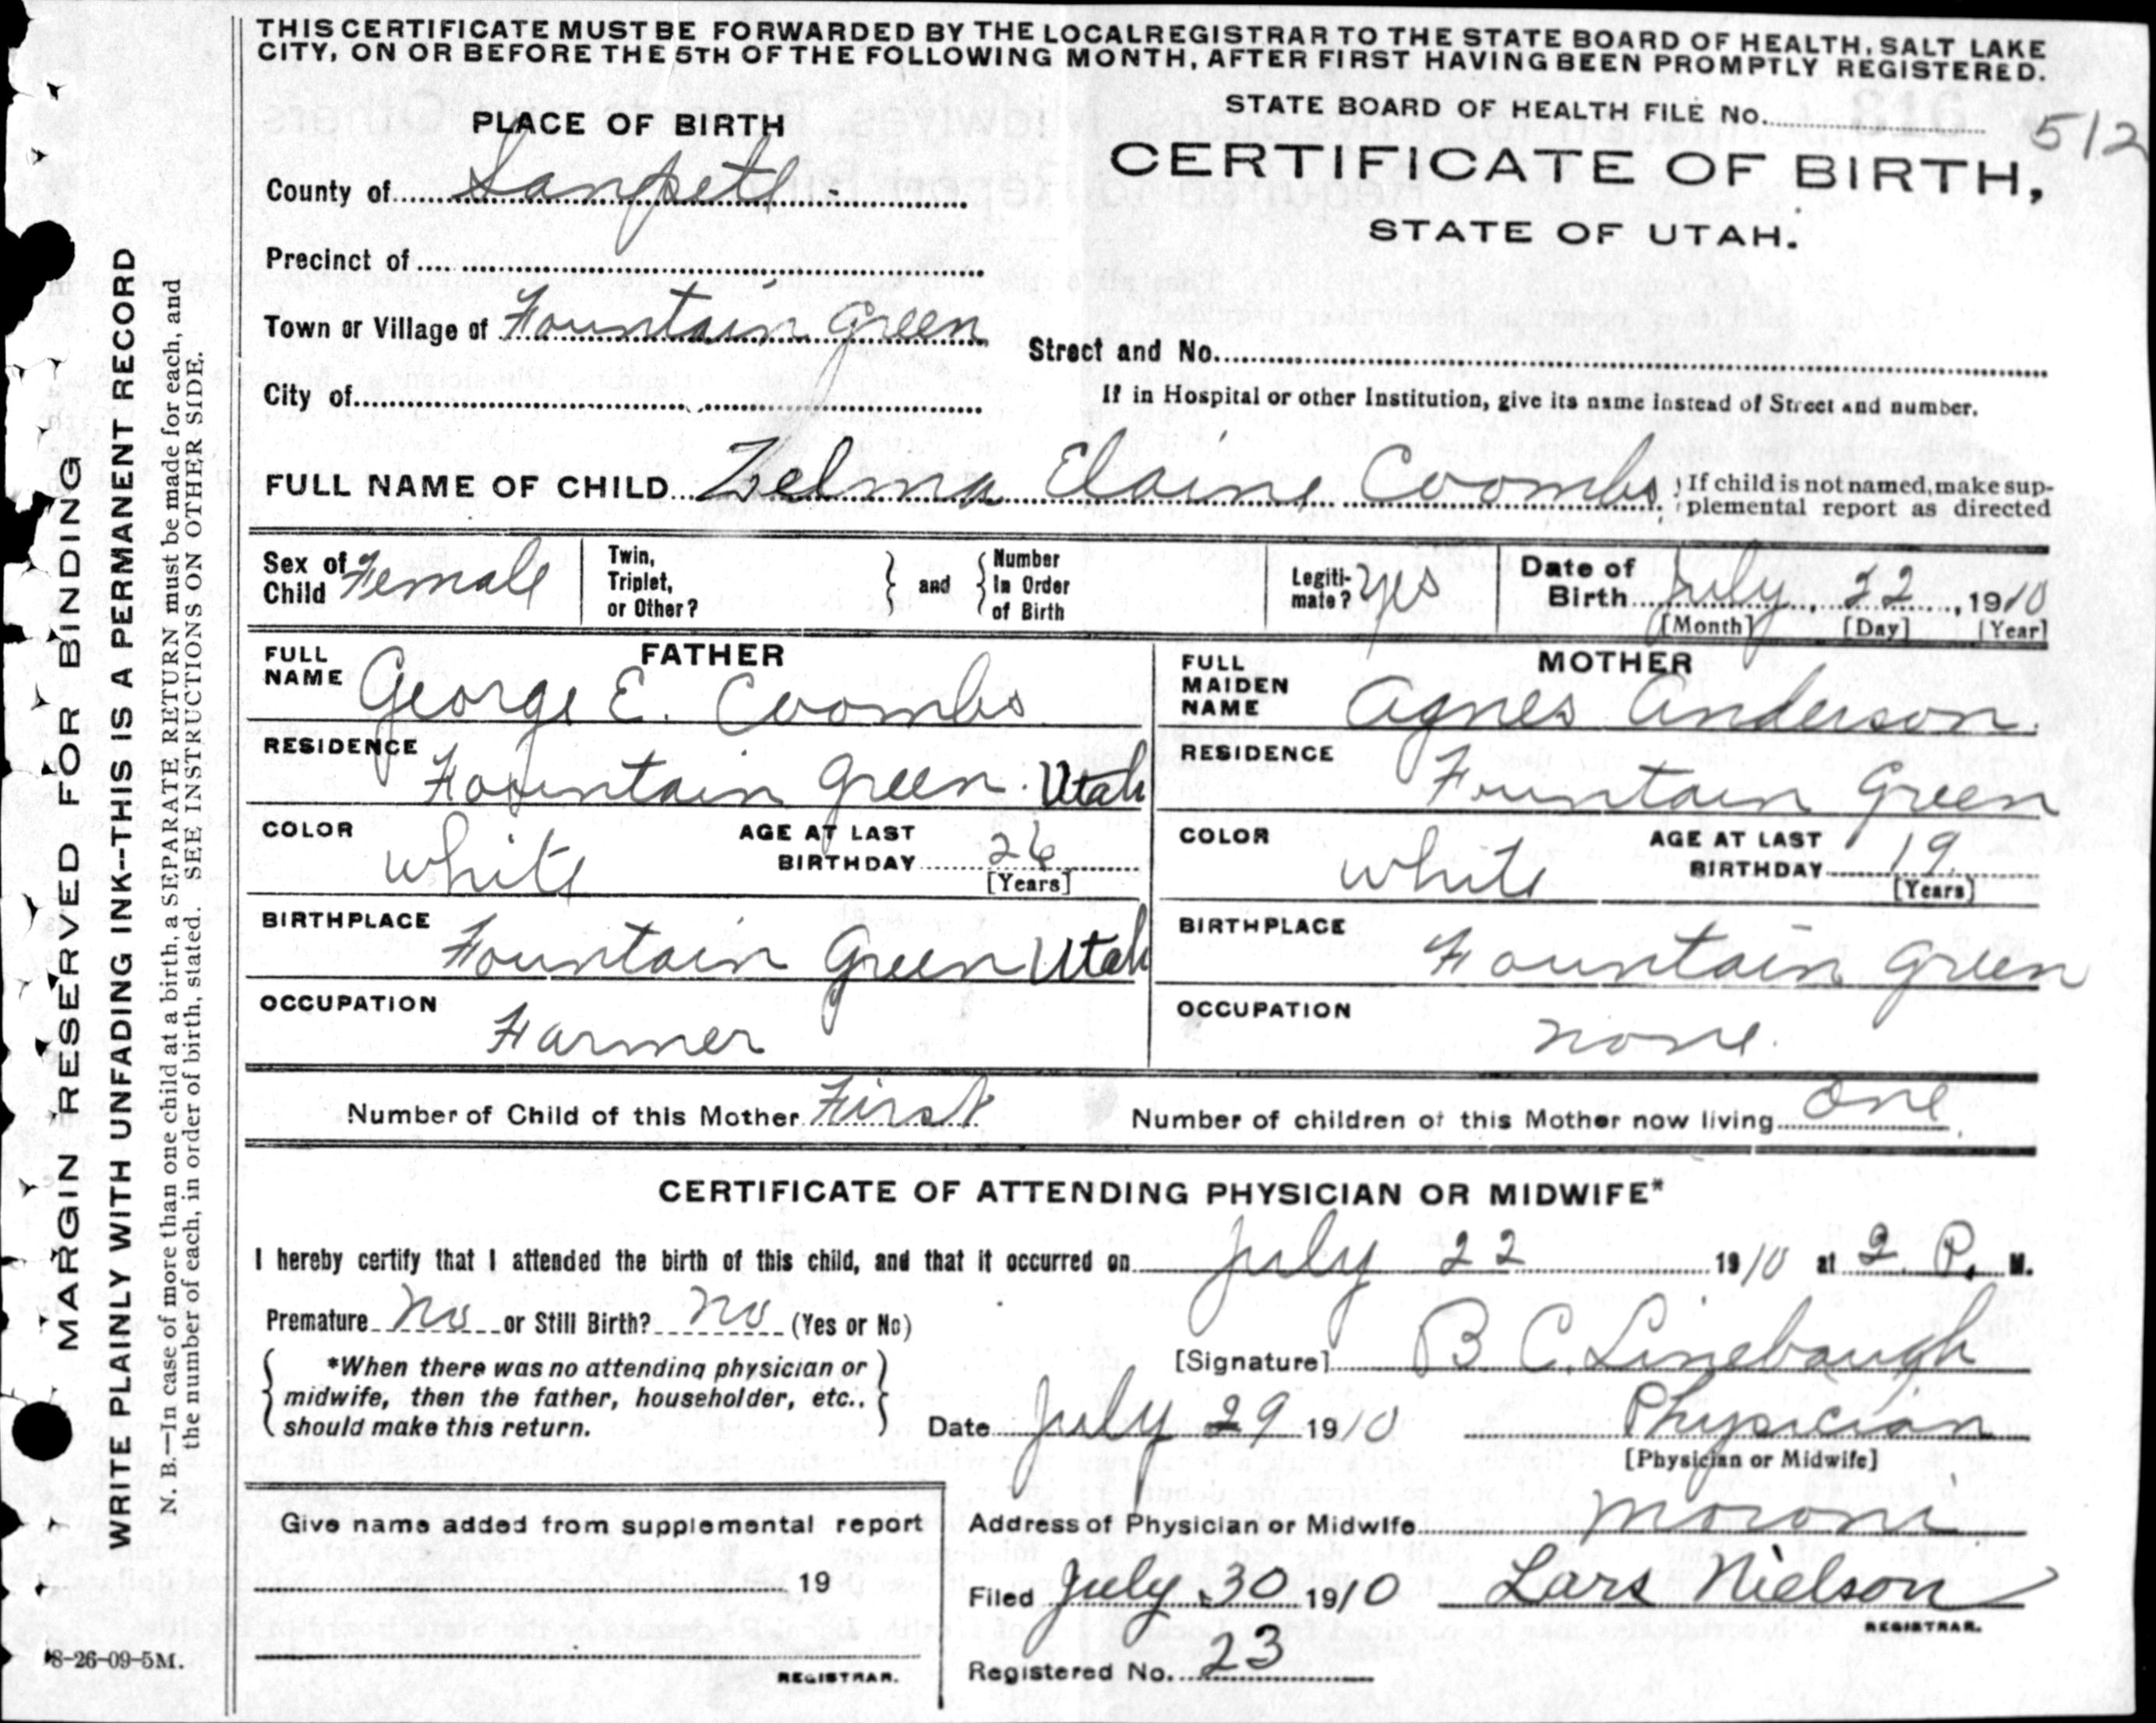 THIS CERTIFICATE MUST BE FORWARDED BY THE LOCAL REGISTRAR TO THE STATE BOARD OF HEALTH, SALT LAKE
CITY, ON OR BEFORE THE 5TH OF THE FOLLOWING MONTH, AFTER FIRST HAVING BEEN PROMPTLY REGISTERED.
STATE BOARD OF HEALTH FILE No. 512
CERTIFICATE OF BIRTH,
STATE OF UTAH.
PLACE OF BIRTH
County of Sanpete
Precinct of
Town or Village of Fountain Green
Street and No.
City of
If in Hospital or other Institution, give its name instead of Street and number.
FULL NAME OF CHILD Zelma Elaine Coombs
If child is not named, make sup-
plemental report as directed
Sex of Child Female
Twin, Triplet, or Other?
and
Number In Order of Birth
Legiti-mate? Yes
Date of Birth July 22, 1910
[Month] [Day] [Year]
FATHER
FULL NAME George E. Coombs
RESIDENCE Fountain Green Utah
COLOR white
AGE AT LAST BIRTHDAY 26 [Years]
BIRTHPLACE Fountain Green Utah
OCCUPATION Farmer
MOTHER
FULL MAIDEN NAME Agnes Anderson.
RESIDENCE Fountain Green
COLOR white
AGE AT LAST BIRTHDAY 19 [Years]
BIRTHPLACE Fountain Green
OCCUPATION none.
Number of Child of this Mother First
Number of children of this Mother now living one
CERTIFICATE OF ATTENDING PHYSICIAN OR MIDWIFE*
I hereby certify that I attended the birth of this child, and that it occurred on July 22 1910 at 2 P. M.
Premature No or Still Birth? No (Yes or No)
*When there was no attending physician or
midwife, then the father, householder, etc.,
should make this return.
[Signature] B C. Linebaugh
Date July 29 1910 Physician
[Physician or Midwife]
Give name added from supplemental report
19
REGISTRAR.
Address of Physician or Midwife Moroni
Filed July 30 1910 Lars Nielson
REGISTRAR.
Registered No. 23
MARGIN RESERVED FOR BINDING
WRITE PLAINLY WITH UNFADING INK--THIS IS A PERMANENT RECORD
N. B.—In case of more than one child at a birth, a SEPARATE RETURN must be made for each, and
the number of each, in order of birth, stated. SEE INSTRUCTIONS ON OTHER SIDE.
8-26-09-5M.